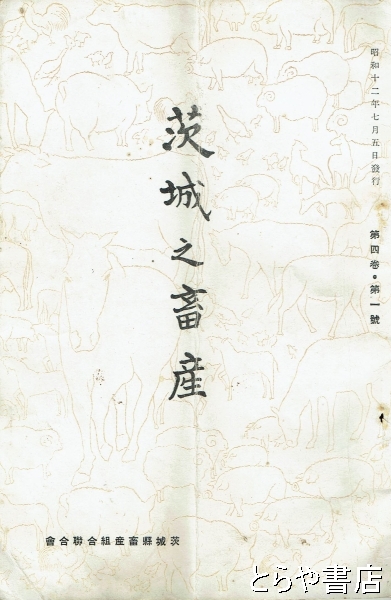 昭和十二年七月五日發行
第四卷・第一號
茨城之畜産
會合聯合組産畜縣城茨
とらや書店